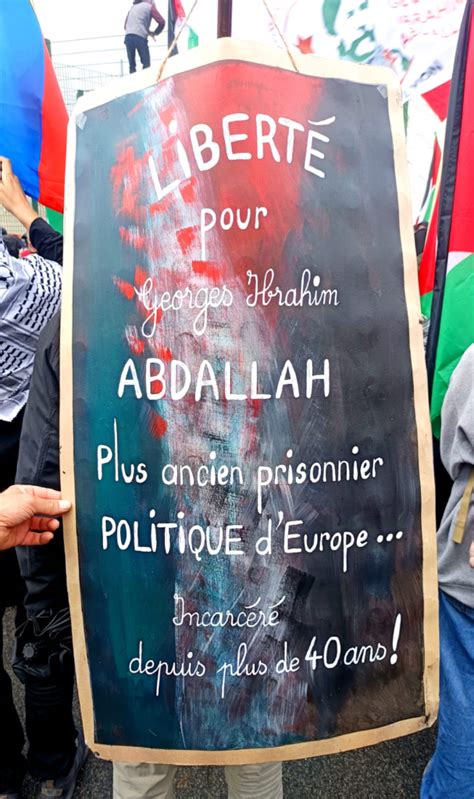 LiBERTÉ
pour
Georges Ibrahim
ABDALLAH
Plus ancien prisonnier
POLITIQUE d'Europe...
Incarcéré
depuis plus de 40 ans!